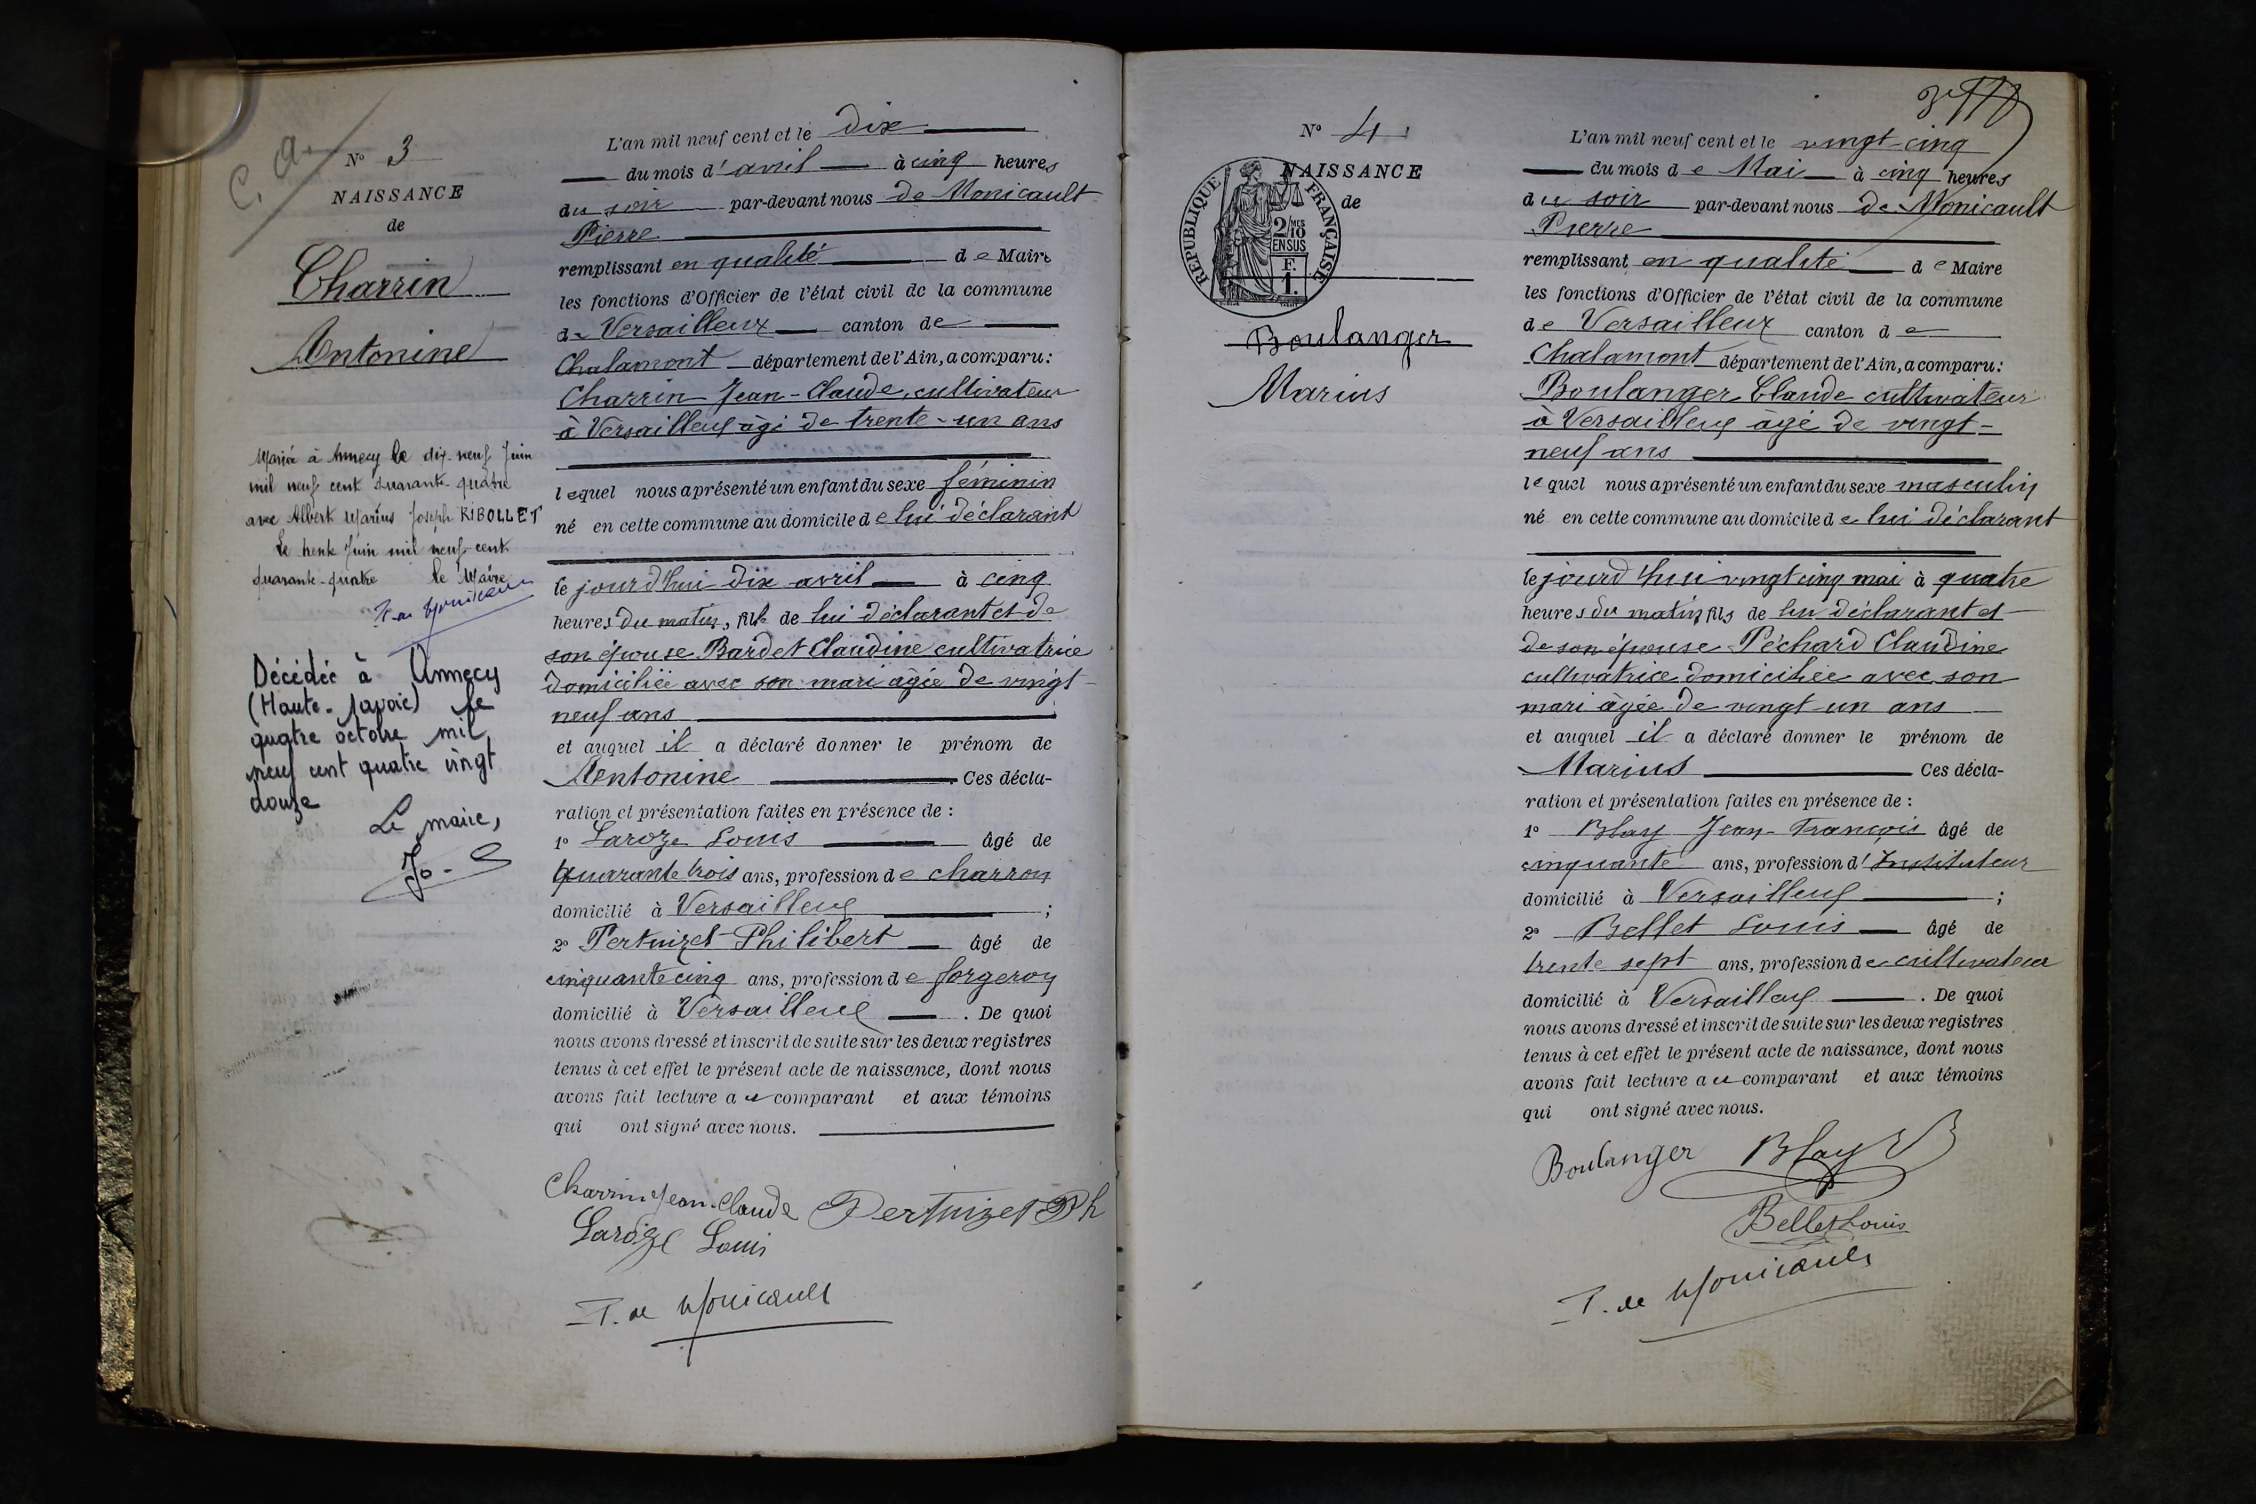 C. a.
N° 3
NAISSANCE
de
Charrin
Antonine
Mariée à Annecy le dix-neuf Juin
mil neuf cent quarante-quatre
avec Albert Marius Joseph RIBOLLET
Le trente Juin mil neuf-cent
quarante-quatre le Maire
Décédée à Annecy
(Haute-Savoie) le
quatre octobre mil
neuf cent quatre vingt
douze
Le maire,
L'an mil neuf cent et le dix
du mois d'avril à cinq heures
du soir par-devant nous de Monicault
Pierre
remplissant en qualité de Maire
les fonctions d'Officier de l'état civil de la commune
de Versailleux canton de
Chalamont département de l'Ain, a comparu:
Charrin Jean-Claude, cultivateur
à Versailleux âgé de trente-un ans
lequel nous a présenté un enfant du sexe féminin
né en cette commune au domicile de lui déclarant
le jourd'hui dix avril à cinq
heures du matin, fille de lui déclarant et de
son épouse Bardet Claudine cultivatrice
domiciliée avec son mari âgée de vingt-
neuf ans
et auquel il a déclaré donner le prénom de
Antonine Ces décla-
ration et présentation faites en présence de :
1° Laroze Louis âgé de
quarante trois ans, profession de charron
domicilié à Versailleux ;
2° Pertuizet Philibert âgé de
cinquante cinq ans, profession de forgeron
domicilié à Versailleux . De quoi
nous avons dressé et inscrit de suite sur les deux registres
tenus à cet effet le présent acte de naissance, dont nous
avons fait lecture au comparant et aux témoins
qui ont signé avec nous.
Charrin Jean-Claude Pertuizet Ph
Laroze Louis
P. de Monicault
N° 4
NAISSANCE
de
RÉPUBLIQUE FRANÇAISE
2/10 MES
EN SUS
F.
1.
Boulanger
Marius
L'an mil neuf cent et le vingt-cinq
du mois de Mai à cinq heures
du soir par-devant nous de Monicault
Pierre
remplissant en qualité de Maire
les fonctions d'Officier de l'état civil de la commune
de Versailleux canton de
Chalamont département de l'Ain, a comparu:
Boulanger Claude cultivateur
à Versailleux âgé de vingt-
neuf ans
lequel nous a présenté un enfant du sexe masculin
né en cette commune au domicile de lui déclarant
le jourd'hui vingt cinq mai à quatre
heures du matin, fils de lui déclarant et
de son épouse Péchard Claudine
cultivatrice domiciliée avec son
mari âgée de vingt-un ans
et auquel il a déclaré donner le prénom de
Marius Ces décla-
ration et présentation faites en présence de :
1° Blay Jean-François âgé de
cinquante ans, profession d'Instituteur
domicilié à Versailleux ;
2° Bellet Louis âgé de
trente sept ans, profession de cultivateur
domicilié à Versailleux . De quoi
nous avons dressé et inscrit de suite sur les deux registres
tenus à cet effet le présent acte de naissance, dont nous
avons fait lecture au comparant et aux témoins
qui ont signé avec nous.
Boulanger Blay
Bellet Louis
P. de Monicault